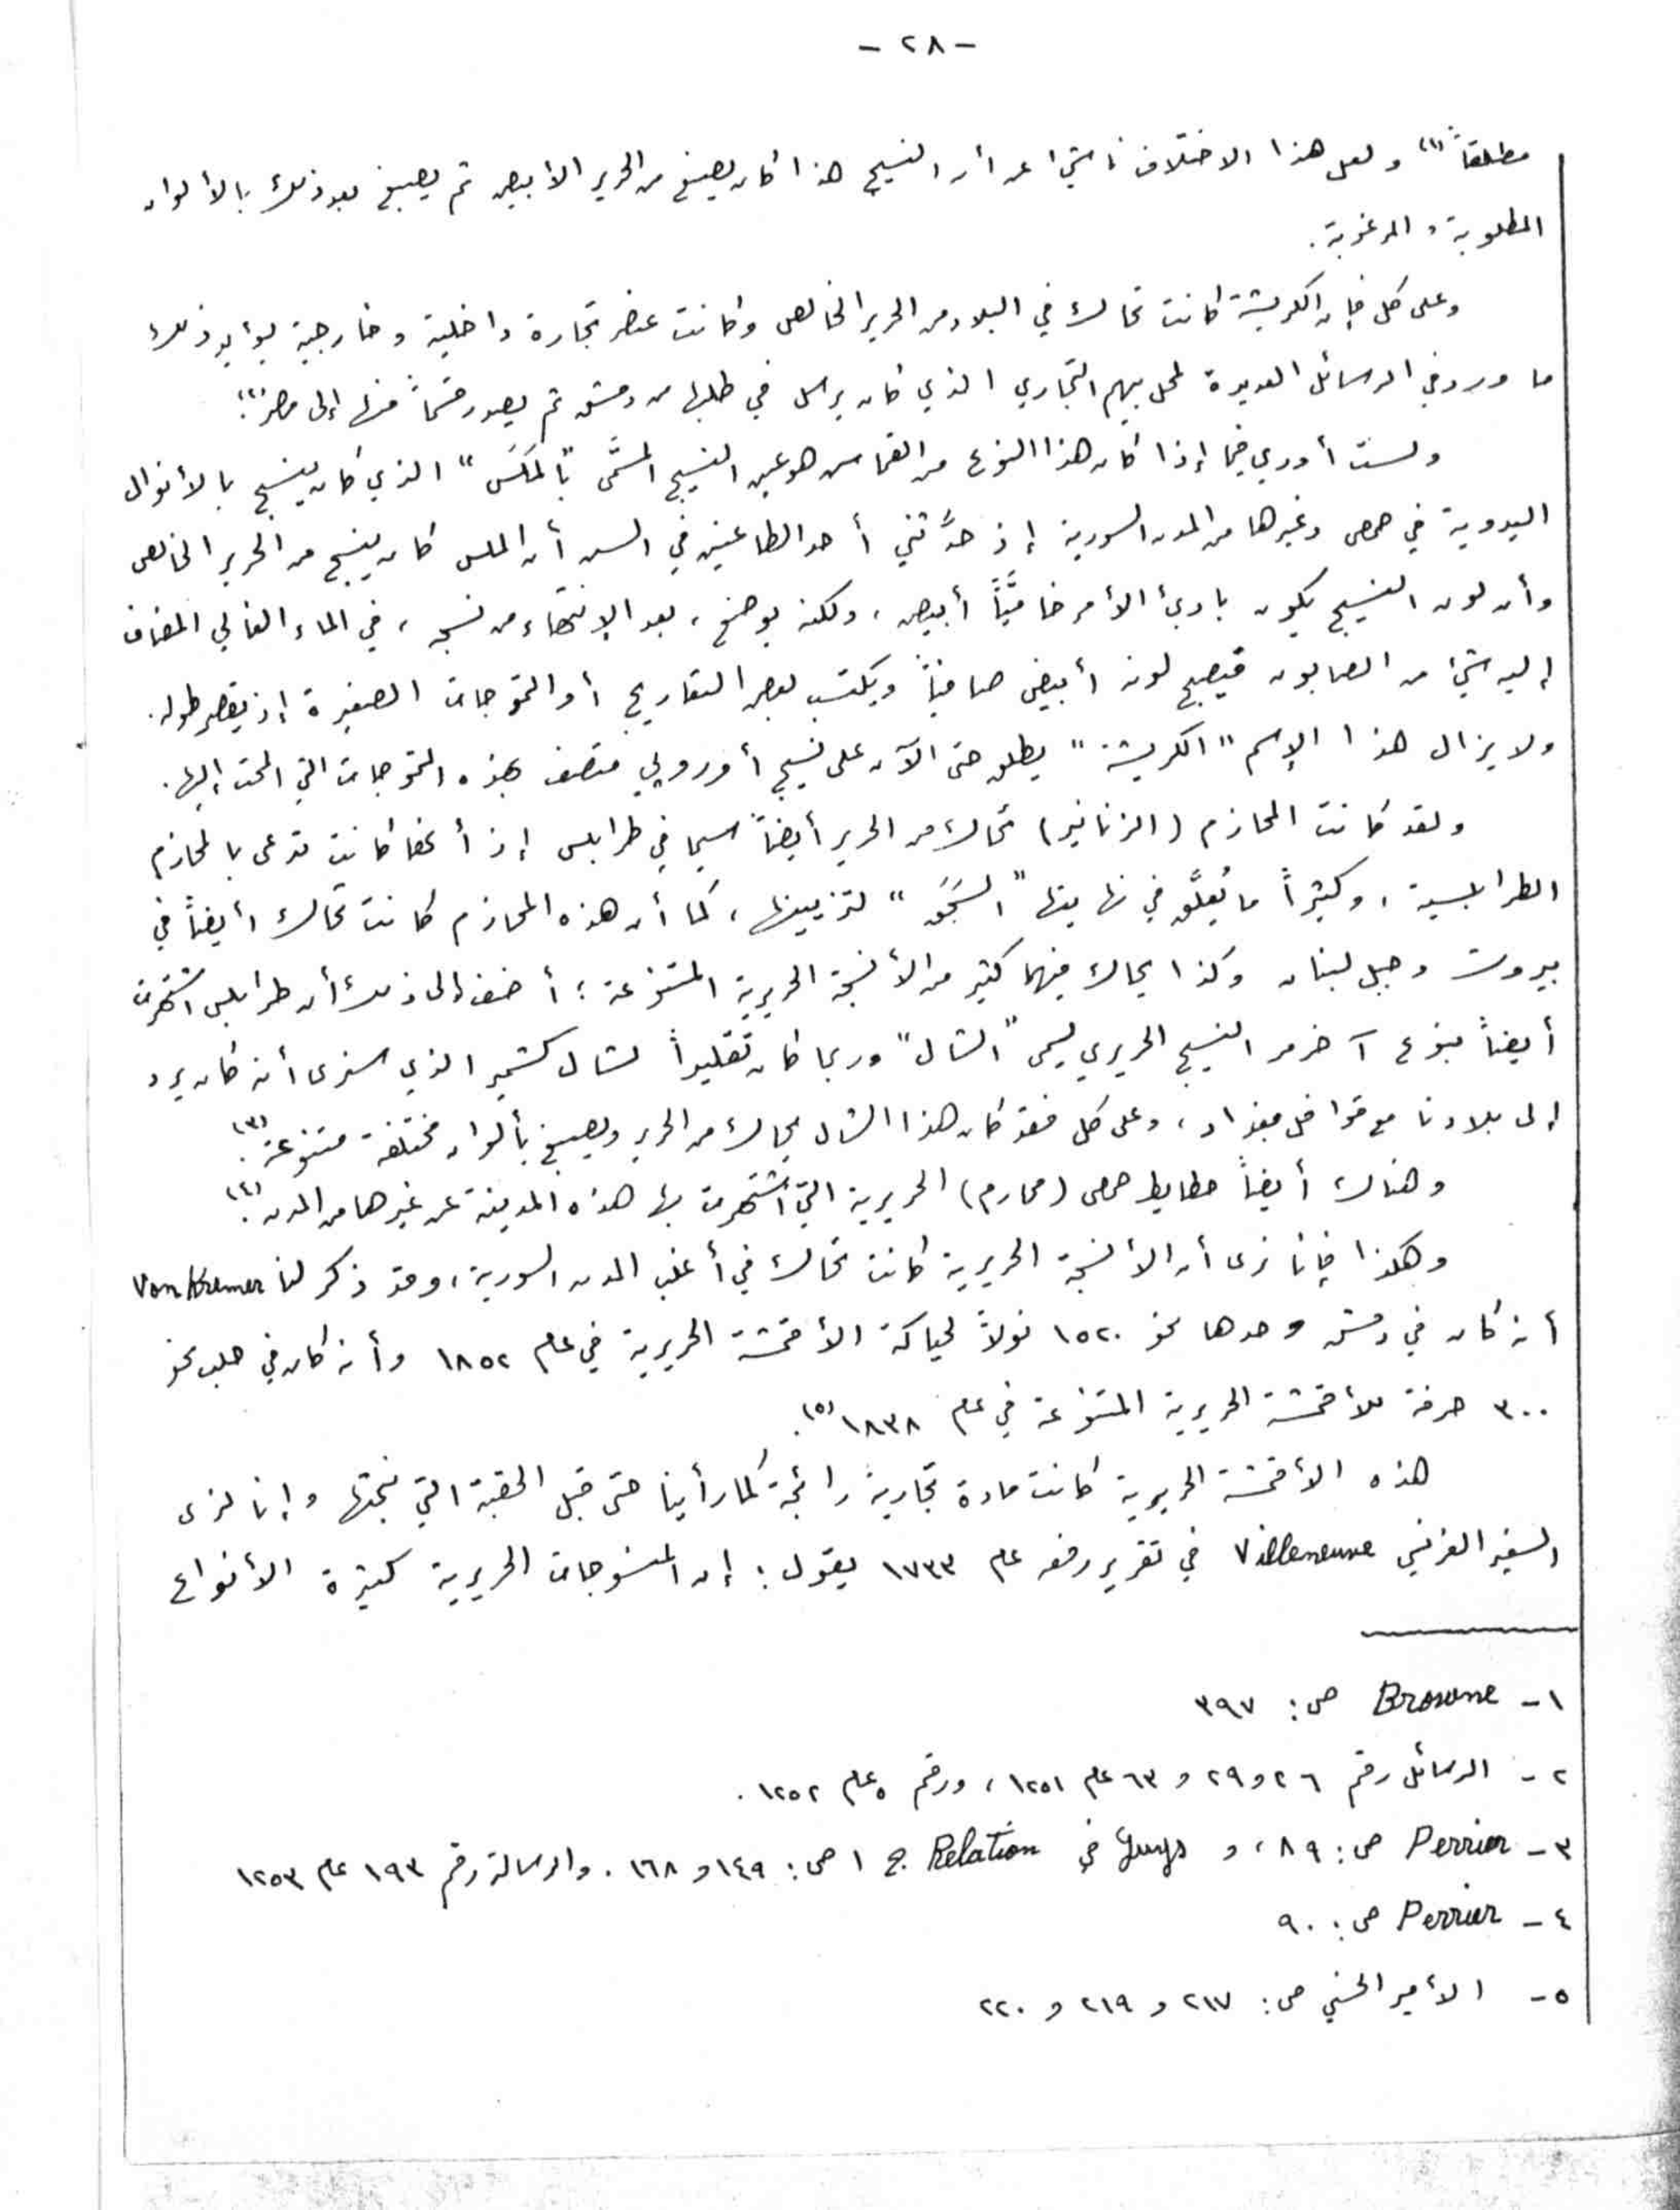 - ٢٨ -
مطلقاً (١) ولعل هذا الاختلاف ناشئ عن أن النسيج هذا كان يصنع من الحرير الأبيض ثم يصبغ بعد ذلك بالألوان
المطلوبة والمرغوبة.
وعلى كل فإن الكريشة كانت تحاك في البلاد من الحرير الخالص وكانت عنصر تجارة داخلية وخارجية يؤيد ذلك
ما ورد في الرسائل العديدة لمحل بيهم التجاري الذي كان يرسل في طلبها من دمشق ثم يصدر قسماً منها إلى مصر (٢).
ولست أدري فيما إذا كان هذا النوع من القماش هو عين النسيج المسمَّى "بالمَلَس" الذي كان ينسج بالأنوال
اليدوية في حمص وغيرها من المدن السورية إذ حدَّثني أحد الطاعنين في السن أن الملس كان ينسج من الحرير الخالص
وأن لون النسيج يكون بادئ الأمر خاميّاً أبيض، ولكنه يوضع، بعد الإنتهاء من نسجه، في الماء الغالي المضاف
إليه شيئ من الصابون فيصبح لونه أبيض صافياً ويكتسب بعض التعاريج أو التموجات الصغيرة إذ يقصر طوله.
ولا يزال هذا الإسم "الكريشة" يطلق حتى الآن على نسيج أوروبي متصف بهذه التموجات التي المحت إليها.
ولقد كانت المحازم (الزنانير) تحاك من الحرير أيضاً سيما في طرابلس إذ أنها كانت تدعى بالمحازم
الطرابلسية، وكثيراً ما يُعلَّق في نهايتها "السَجَق" لتزيينها، كما أن هذه المحازم كانت تحاك أيضاً في
بيروت وجبل لبنان وكذا يحاك فيهما كثير من الأنسجة الحريرية المتنوعة؛ أضف إلى ذلك أن طرابلس اشتهرت
أيضاً بنوع آخر من النسيج الحريري يسمى "الشال" وربما كان تقليداً لشال كشمير الذي سنرى أنه كان يرد
إلى بلادنا مع قوافل بغداد، وعلى كل فقد كان هذا الشال يحاك من الحرير ويصبغ بألوان مختلفة متنوعة (٣).
وهناك أيضاً مطايط حمص (محارم) الحريرية التي اشتهرت بها هذه المدينة عن غيرها من المدن (٤).
وهكذا فإنا نرى أن الأنسجة الحريرية كانت تحاك في أغلب المدن السورية، وقد ذكر لنا Von Kremer
أنه كان في دمشق وحدها نحو ١٥٢٠ نولاً لحياكة الأقمشة الحريرية في عام ١٨٥٢ وأنه كان في حلب نحو
٣٠٠ حرفة للأقمشة الحريرية المتنوعة في عام ١٨٣٨ (٥).
هذه الأقمشة الحريرية كانت مادة تجارية رائجة كما رأينا حتى قبل الحقبة التي نبحثها وإنا لنرى
السفير الفرنسي Villeneuve في تقرير رفعه عام ١٧٣٣ يقول: إن المنسوجات الحريرية كثيرة الأنواع
١- Browne ص: ٣٩٧
٢- الرسائل رقم ٢٦ و ٢٩ و ٦٣ عام ١٢٥١، ورقم ٥ عام ١٢٥٢.
٣- Perrier ص: ٨٩، و Guys في Relation ج ١ ص: ١٤٩ و ١٦٨. والرسالة رقم ١٩٣ عام ١٢٥٣
٤- Perrier ص: ٩٠
٥- الأمير الحسني ص: ٢١٧ و ٢١٩ و ٢٢٠